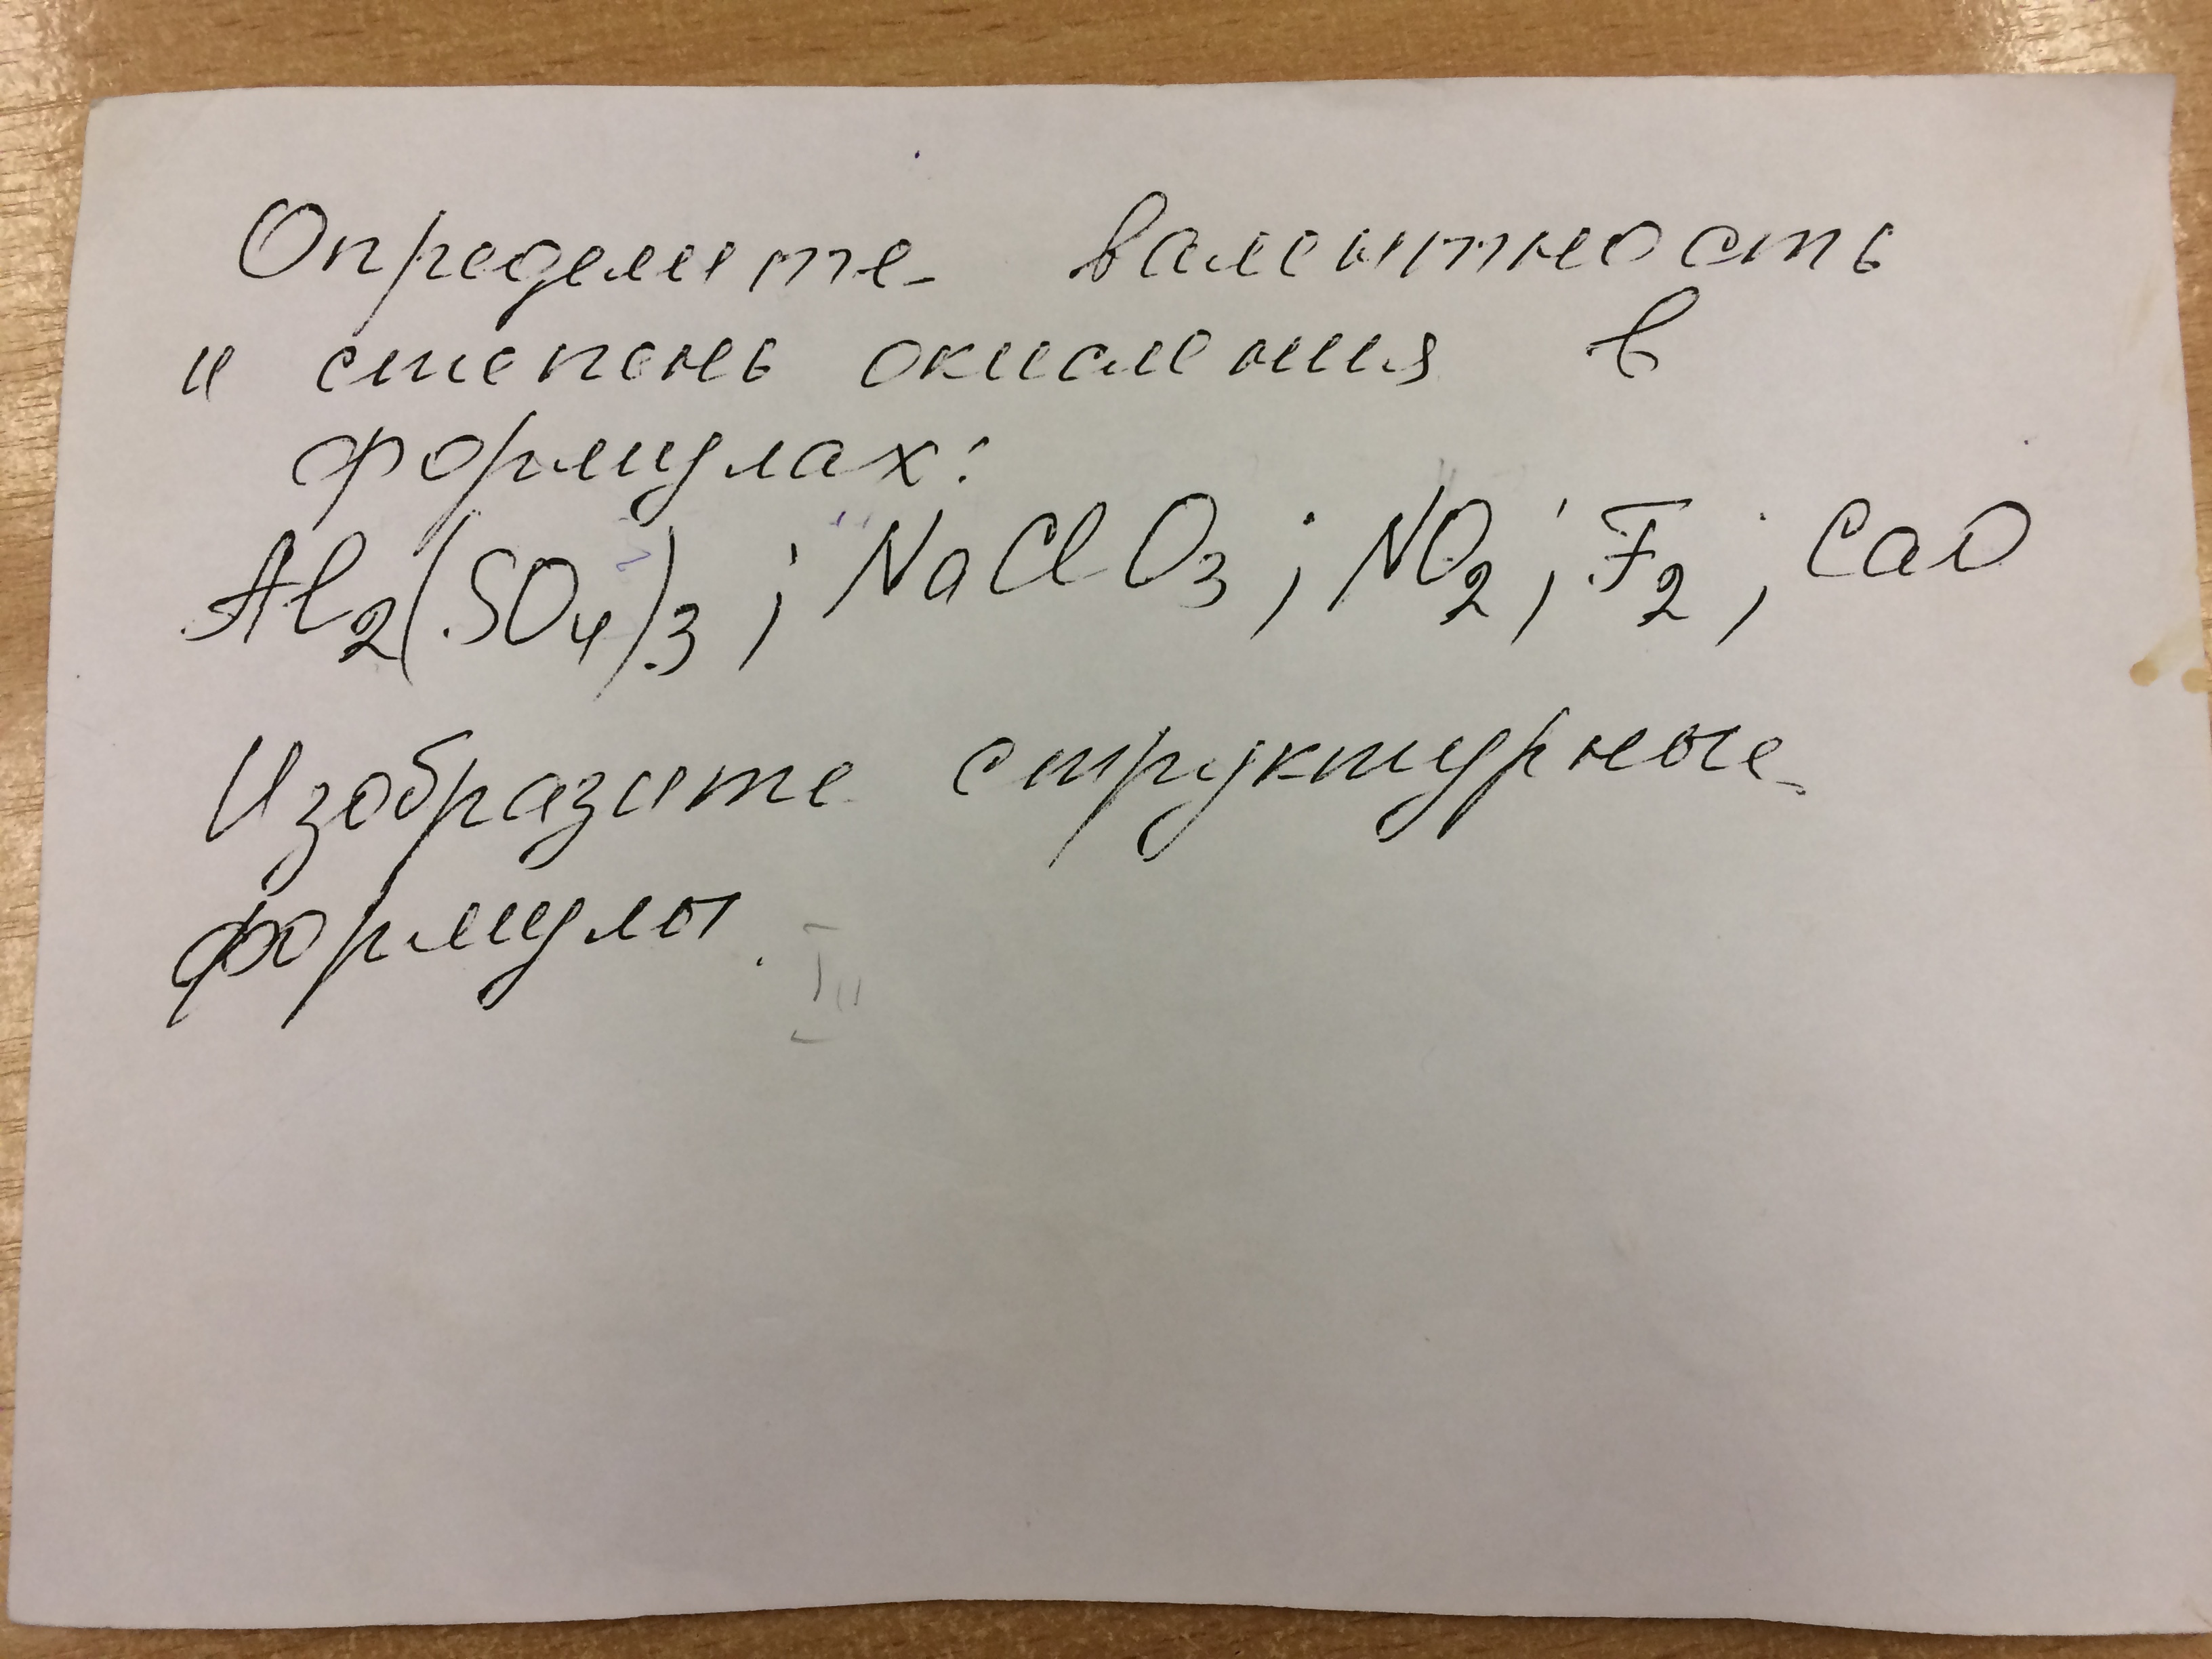 Определите валентность
и степень окисления в
формулах:
Al₂(SO₄)₃; NaClO₃; NO₂; F₂; CaO
Изобразите структурные
формулы.